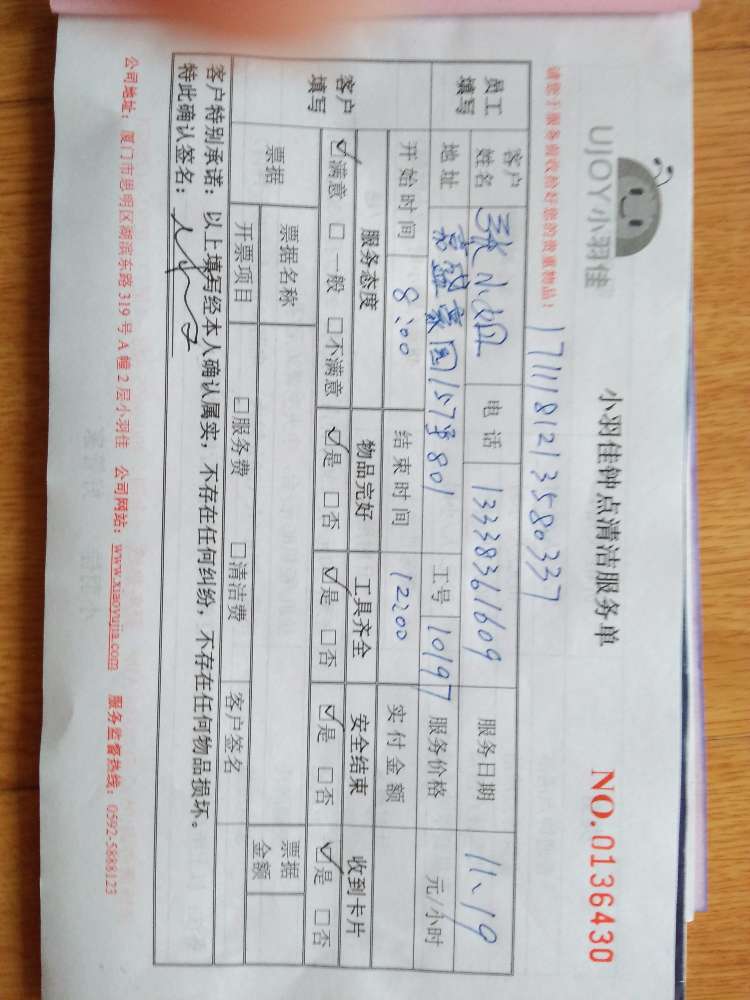 UJOY小羽佳
小羽佳钟点清洁服务单
NO.0136430
请您于服务前收拾好您的贵重物品!
1711181213580337
员工填写
客户姓名 张小姐 电话 13338361609 服务日期 11、19
地址 嘉盛豪园157号801 工号 10197 服务价格 元/小时
开始时间 8:00 结束时间 12:00 实付金额
客户填写
服务态度 物品完好 工具齐全 安全结束 收到卡片
☑满意 □一般 □不满意 ☑是 □否 ☑是 □否 ☑是 □否 ☑是 □否
票据 票据名称 票据金额
开票项目 □服务费 □清洁费 客户签名
客户特别承诺:以上填写经本人确认属实,不存在任何纠纷,不存在任何物品损坏。
特此确认签名:
公司地址:厦门市思明区湖滨东路319号A幢2层小羽佳 公司网站:www.xiaoyujia.com 服务监督热线:0592-5888123